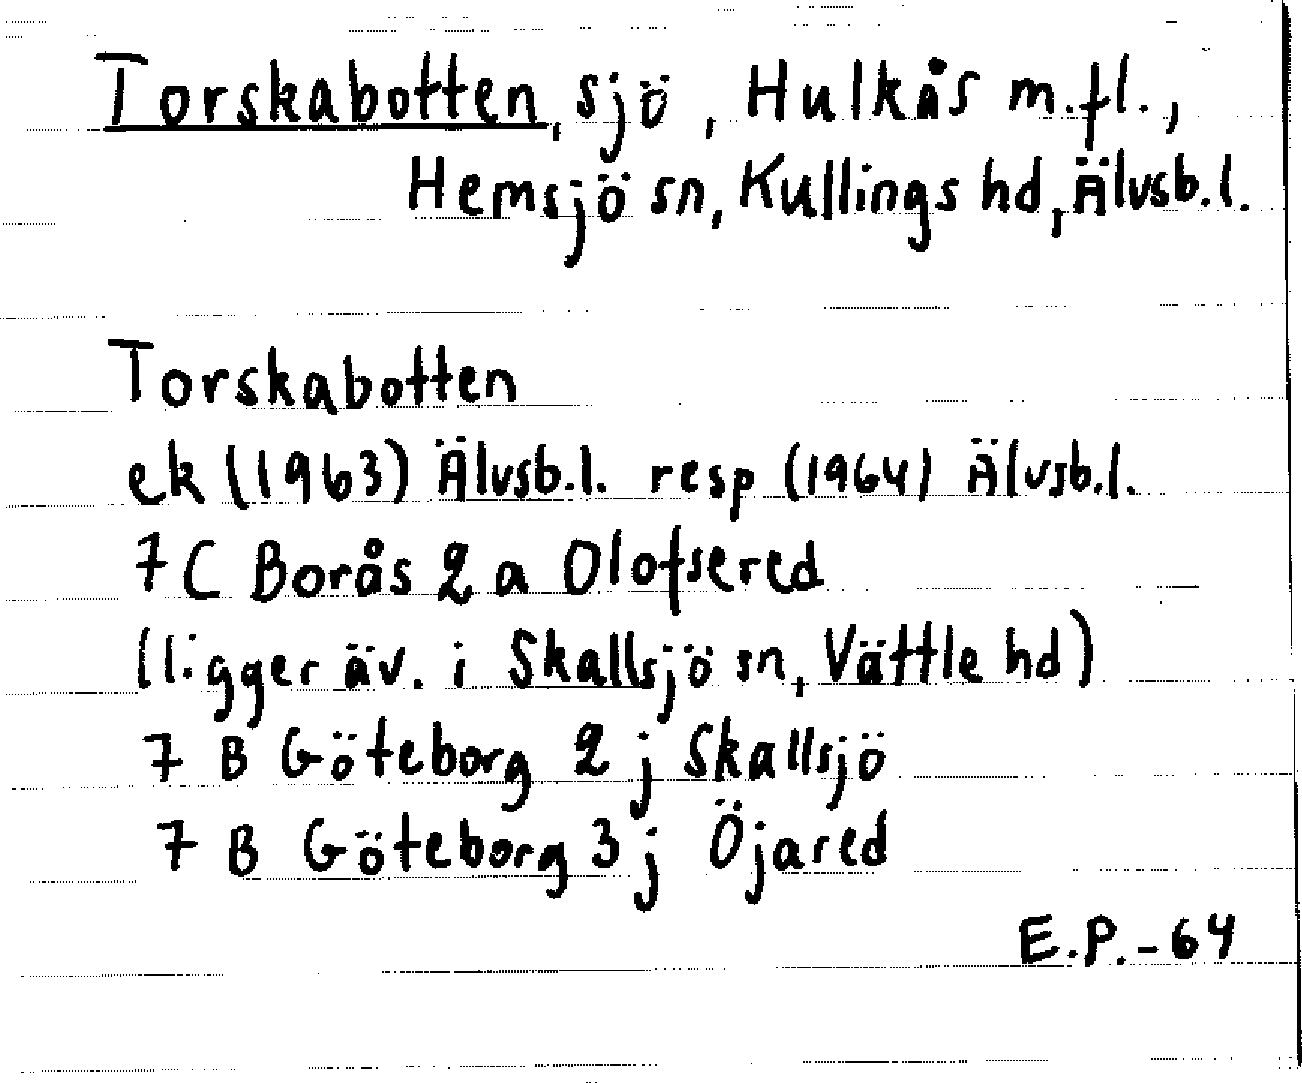 Torskabotten, sjö, Hulkås m.fl.,
Hemsjö sn, Kullings hd, Älvsb.l.
Torskabotten
ek (1963) Älvsb.l. resp (1964) Älvsb.l.
7 C Borås 2 a Olofsered
(ligger äv. i Skallsjö sn, Vättle hd)
7 B Göteborg 2 j Skallsjö
7 B Göteborg 3 j Öjared
E.P.-64